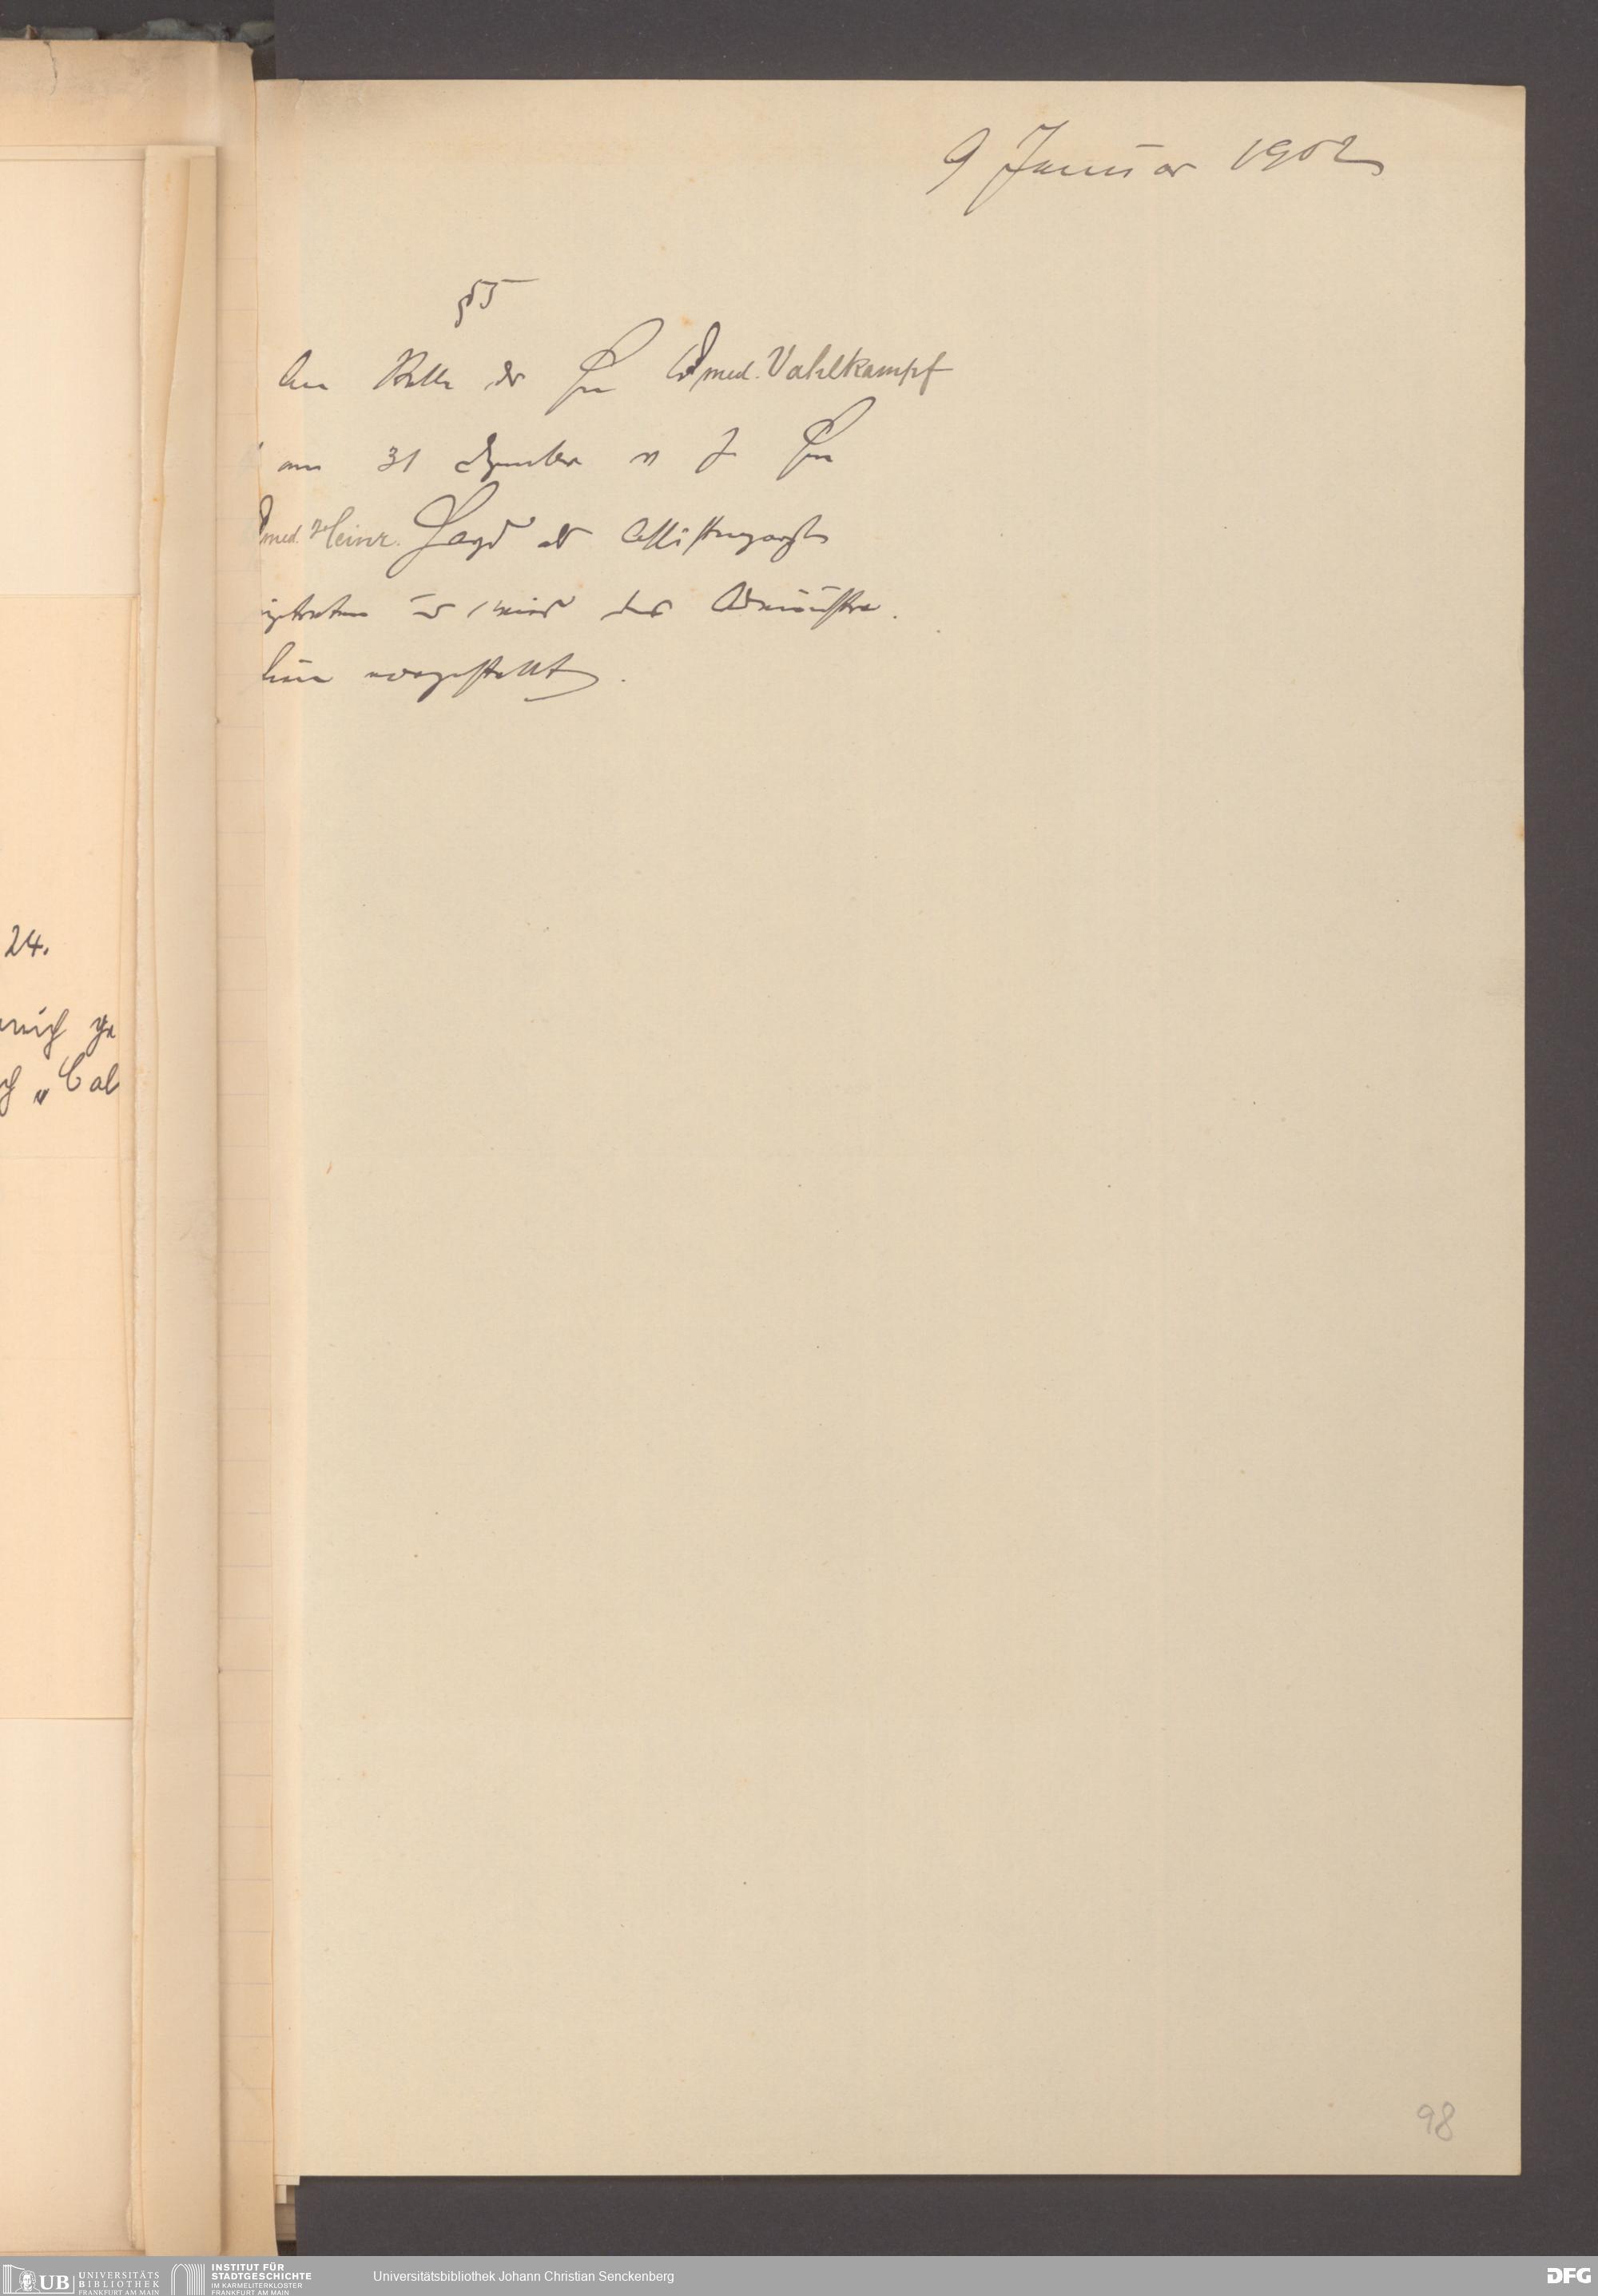 9 Januar 1902
§ 5
An Stelle des Herrn Dr med. Vahlkampf
am 31 Dezember v J Herr
med. Heinr. Jagd als Assistenzarzt
getreten u wird der Administra.
tion vorgestellt.
98
24.
mich ge
„Cal
UB UNIVERSITÄTS BIBLIOTHEK FRANKFURT AM MAIN
INSTITUT FÜR STADTGESCHICHTE IM KARMELITERKLOSTER FRANKFURT AM MAIN
Universitätsbibliothek Johann Christian Senckenberg
DFG